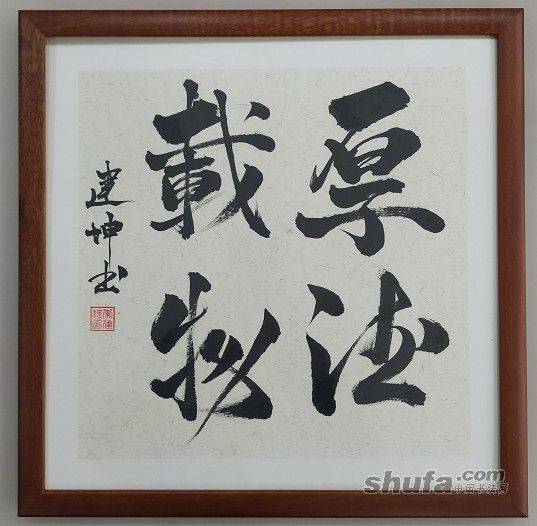 厚德
載物
建坤书
shufa.com
中国书法网